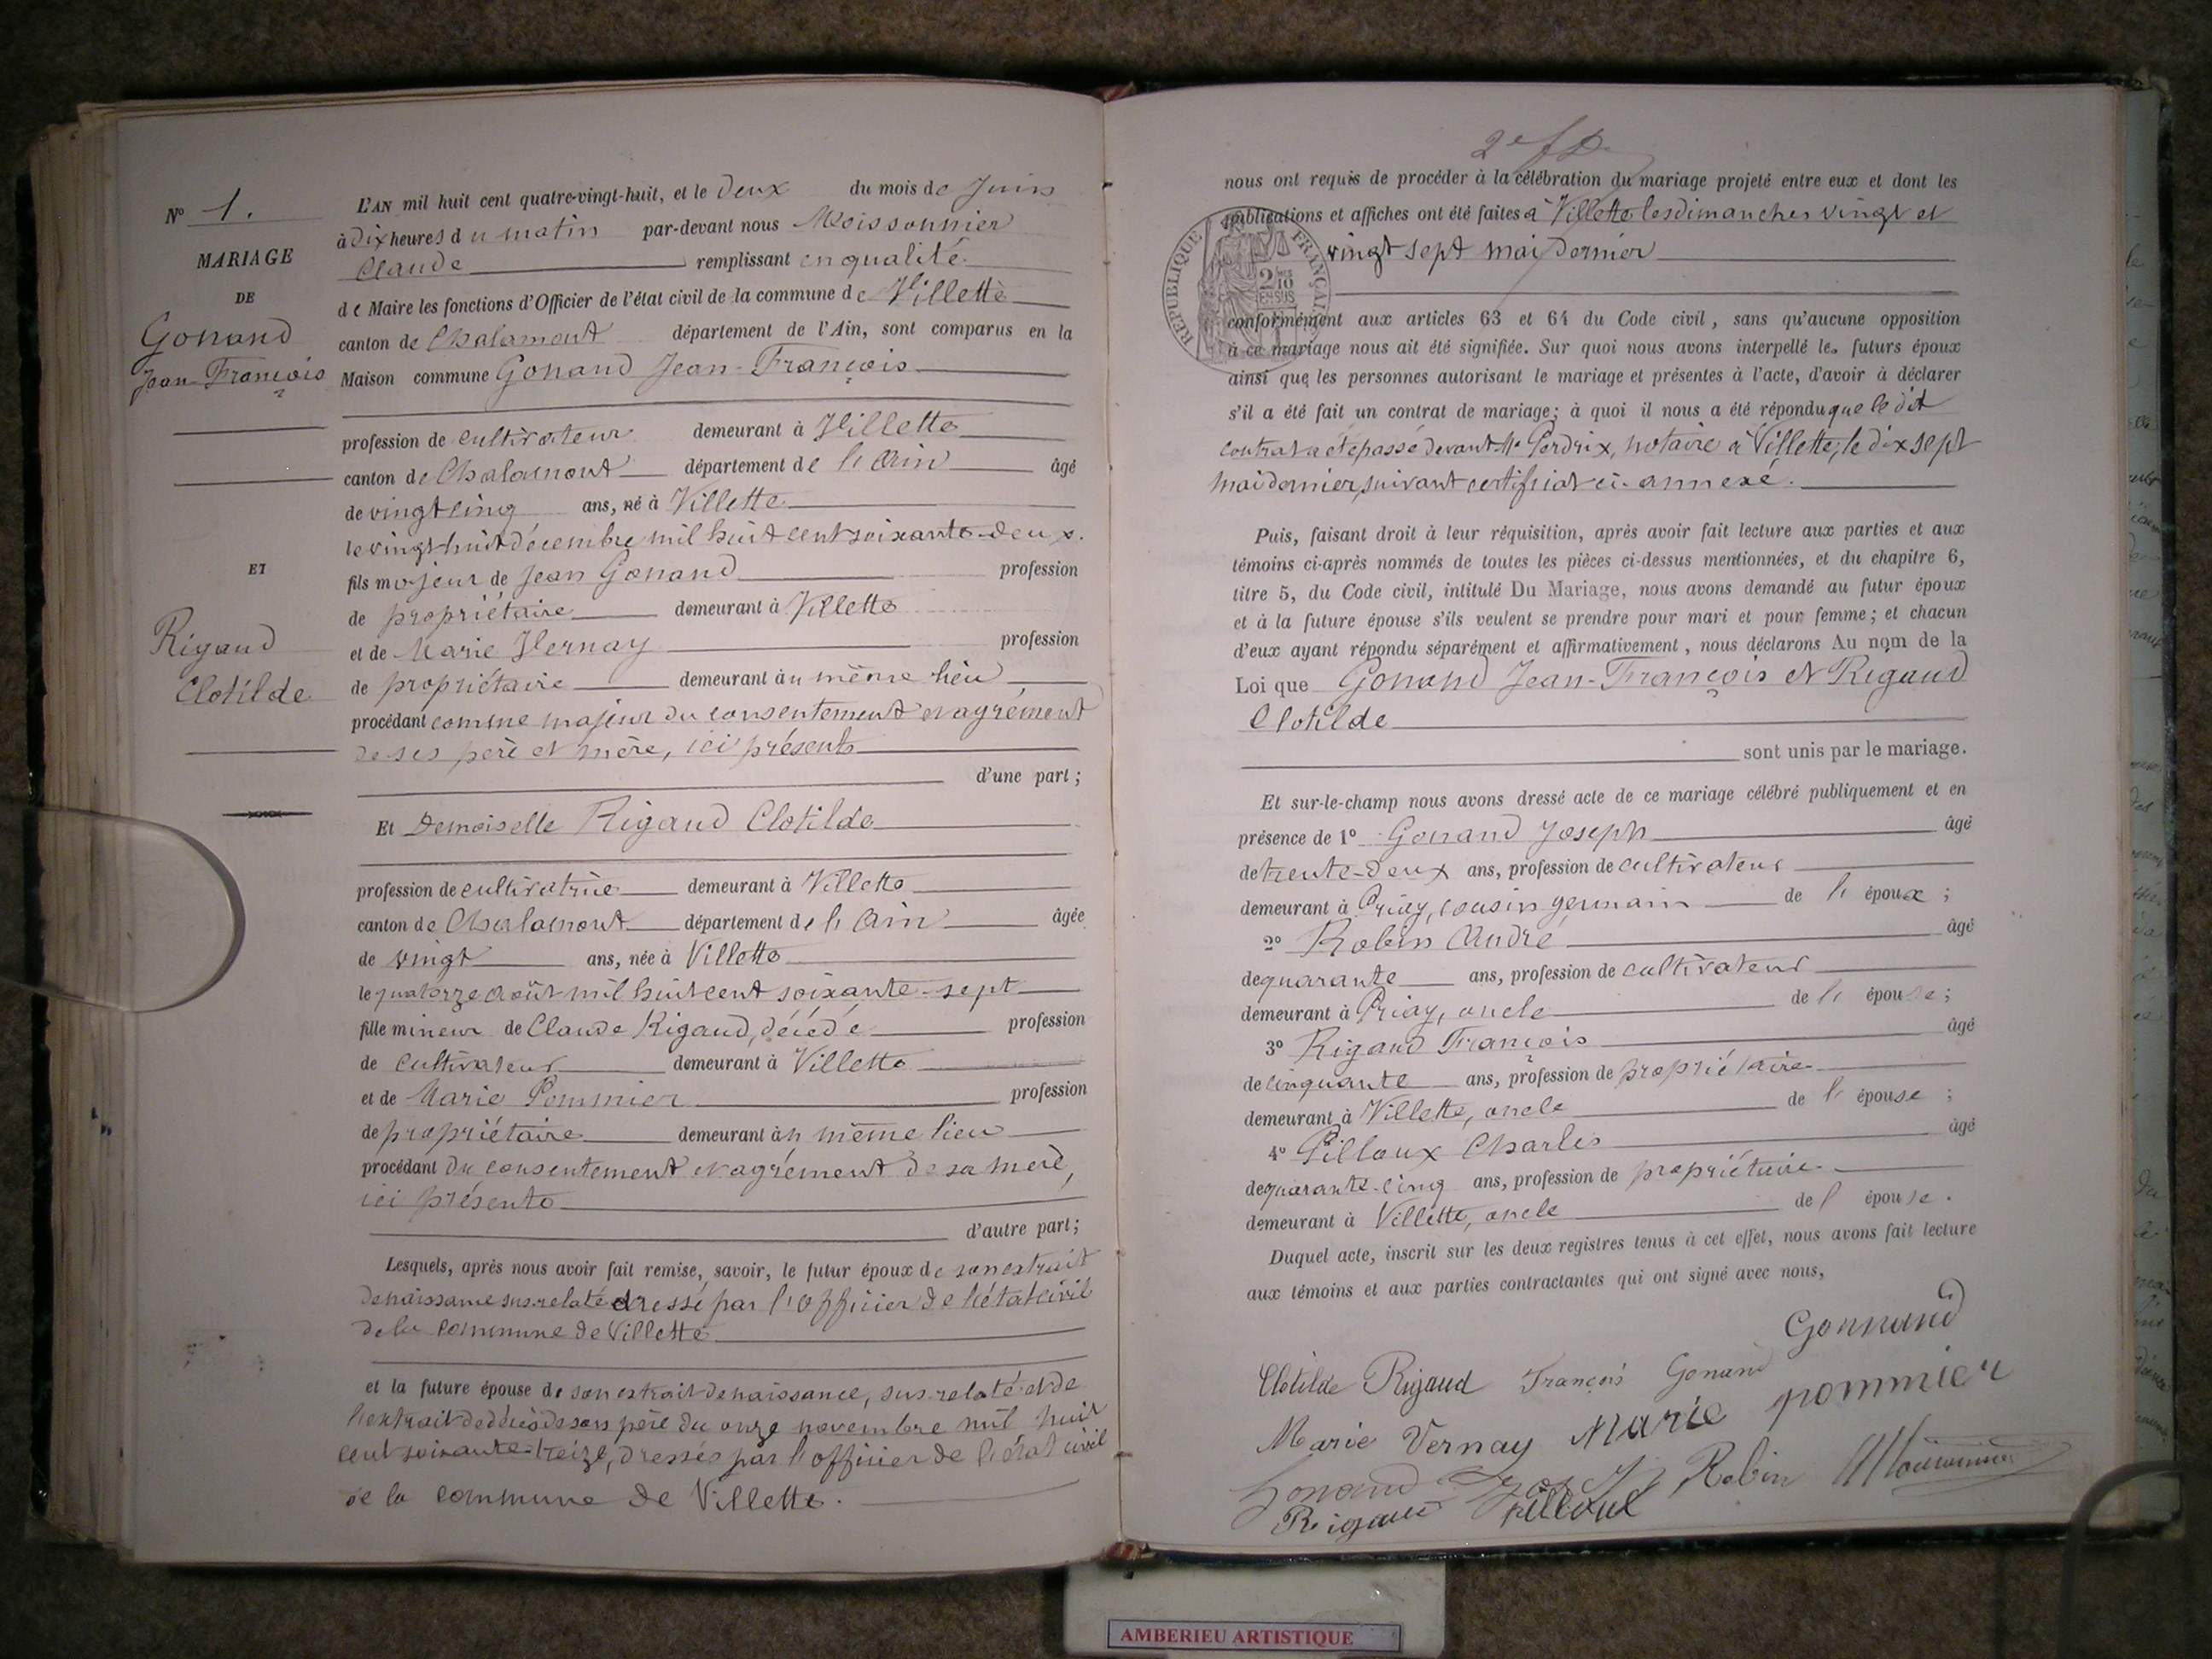 N° 1.
MARIAGE
DE
Gonand
Jean-François
ET
Rigaud
Clotilde
L'AN mil huit cent quatre-vingt-huit, et le deux du mois de Juin
à dix heures du matin par-devant nous Moissonnier
Claude remplissant en qualité
de Maire les fonctions d'Officier de l'état civil de la commune de Villette
canton de Chalamont département de l'Ain, sont comparus en la
Maison commune Gonand Jean-François
profession de cultivateur demeurant à Villette
canton de Chalamont département de l'Ain âgé
de vingt cinq ans, né à Villette
le vingt huit décembre mil huit cent soixante-deux.
fils majeur de Jean Gonand profession
de propriétaire demeurant à Villette
et de Marie Vernay profession
de propriétaire demeurant au même lieu
procédant comme majeur du consentement et agrément
de ses père et mère, ici présents
d'une part;
Et Demoiselle Rigaud Clotilde
profession de cultivatrice demeurant à Villette
canton de Chalamont département de l'Ain âgée
de vingt ans, née à Villette
le quatorze août mil huit cent soixante-sept
fille mineur de Claude Rigaud, décédé profession
de cultivateur demeurant à Villette
et de Marie Pommier profession
de propriétaire demeurant au même lieu
procédant du consentement et agrément de sa mère,
ici présente
d'autre part;
Lesquels, après nous avoir fait remise, savoir, le futur époux de son extrait
de naissance sus-relaté dressé par l'officier de l'état civil
de la commune de Villette
et la future épouse de son extrait de naissance, sus-relaté et de
l'extrait de décès de son père du onze novembre mil huit
cent soixante-treize, dressés par l'officier de l'état civil
de la commune de Villette.
2e
nous ont requis de procéder à la célébration du mariage projeté entre eux et dont les
publications et affiches ont été faites à Villette les dimanches vingt et
vingt sept mai dernier
RÉPUBLIQUE FRANÇAISE
2/10
EN SUS
conformément aux articles 63 et 64 du Code civil, sans qu'aucune opposition
à ce mariage nous ait été signifiée. Sur quoi nous avons interpellé les futurs époux
ainsi que les personnes autorisant le mariage et présentes à l'acte, d'avoir à déclarer
s'il a été fait un contrat de mariage; à quoi il nous a été répondu que le dit
contrat a été passé devant Me Perdrix, notaire à Villette, le dix sept
mai dernier, suivant certificat ci-annexé.
Puis, faisant droit à leur réquisition, après avoir fait lecture aux parties et aux
témoins ci-après nommés de toutes les pièces ci-dessus mentionnées, et du chapitre 6,
titre 5, du Code civil, intitulé Du Mariage, nous avons demandé au futur époux
et à la future épouse s'ils veulent se prendre pour mari et pour femme; et chacun
d'eux ayant répondu séparément et affirmativement, nous déclarons Au nom de la
Loi que Gonand Jean-François et Rigaud
Clotilde
sont unis par le mariage.
Et sur-le-champ nous avons dressé acte de ce mariage célébré publiquement et en
présence de 1° Gonand Joseph âgé
de trente-deux ans, profession de cultivateur
demeurant à Priay, cousin germain de l'époux;
2° Robin André âgé
de quarante ans, profession de cultivateur
demeurant à Priay, oncle de l'épouse;
3° Rigaud François âgé
de cinquante ans, profession de propriétaire
demeurant à Villette, oncle de l'épouse;
4° Pilloux Charles âgé
de quarante-cinq ans, profession de propriétaire
demeurant à Villette, oncle de l'épouse.
Duquel acte, inscrit sur les deux registres tenus à cet effet, nous avons fait lecture
aux témoins et aux parties contractantes qui ont signé avec nous,
Gonnand
Clotilde Rigaud François Gonand
Marie Vernay Marie pommier
Gonand Joseph Robin Moissonnier
Rigaud Pilloux
AMBERIEU ARTISTIQUE